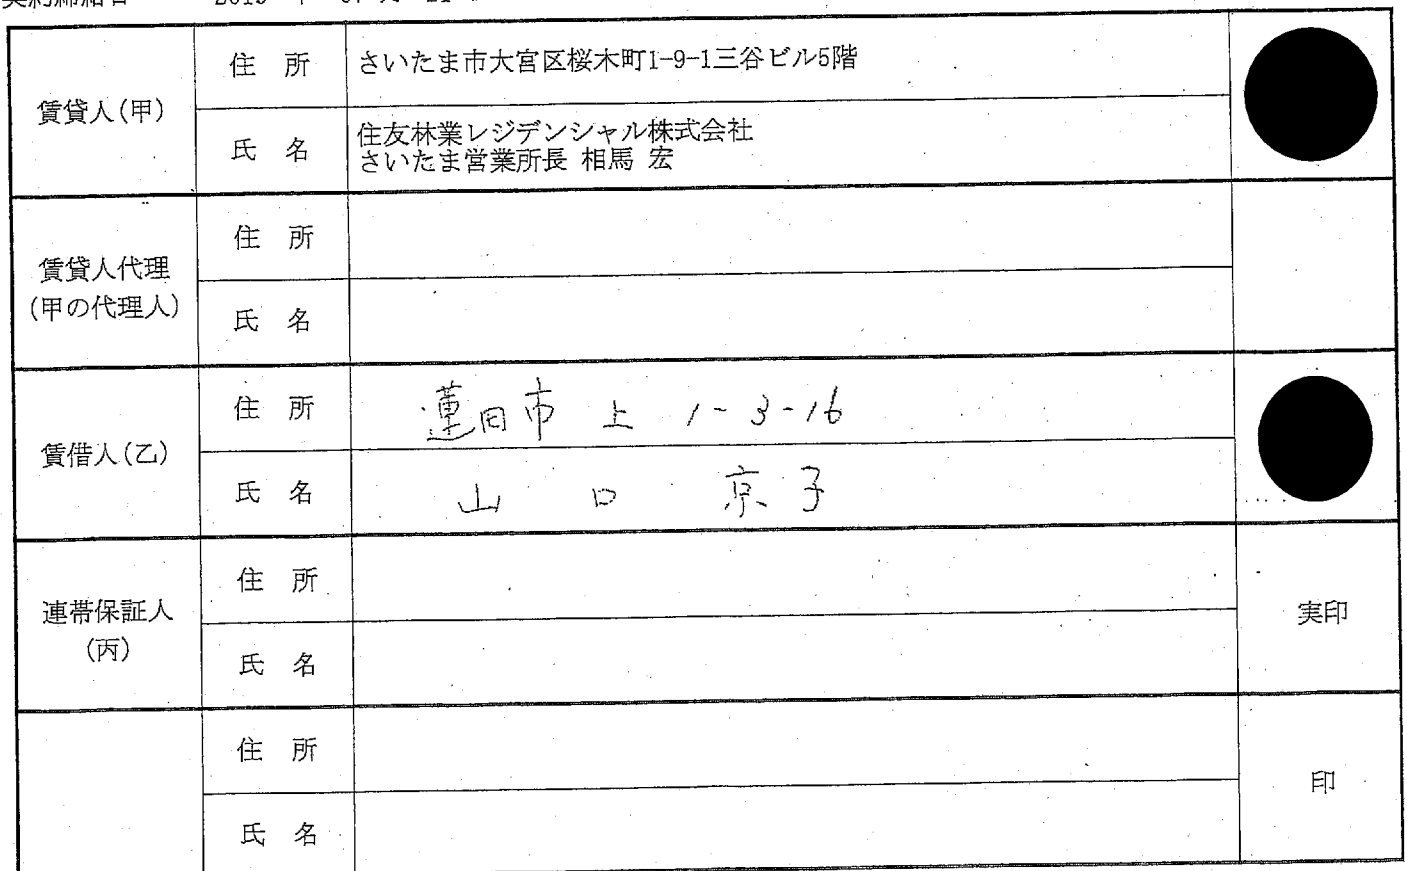 賃貸人(甲)
住 所
さいたま市大宮区桜木町1-9-1三谷ビル5階
氏 名
住友林業レジデンシャル株式会社
さいたま営業所長 相馬 宏
賃貸人代理
(甲の代理人)
住 所
氏 名
賃借人(乙)
住 所
蓮田市 上 1-3-16
氏 名
山 口 京 子
連帯保証人
(丙)
住 所
氏 名
実印
住 所
氏 名
印